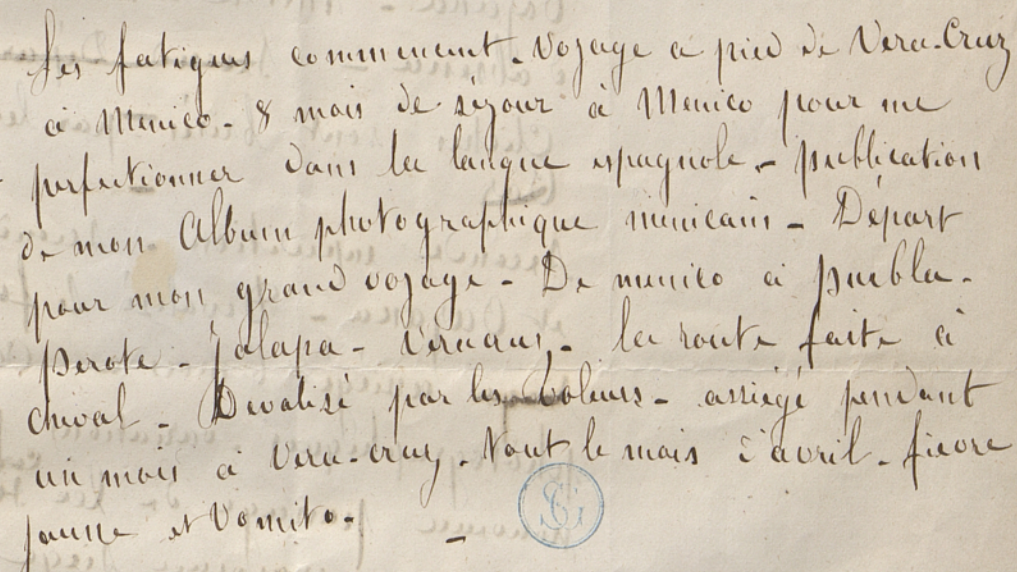 les fatigues commencent. Voyage a pied de Vera-Cruz
à Mexico - 8 mois de séjour à Mexico pour me
perfectionner dans la langue espagnole - publication
de mon Album photographique mexicain - Départ
pour mon grand voyage - De mexico à puebla -
perote - jalapa - la route faite à
cheval - Devalisé par les voleurs - assiégé pendant
un mois à Vera-cruz - tout le mois d'avril - fièvre
jaune et Vomito -